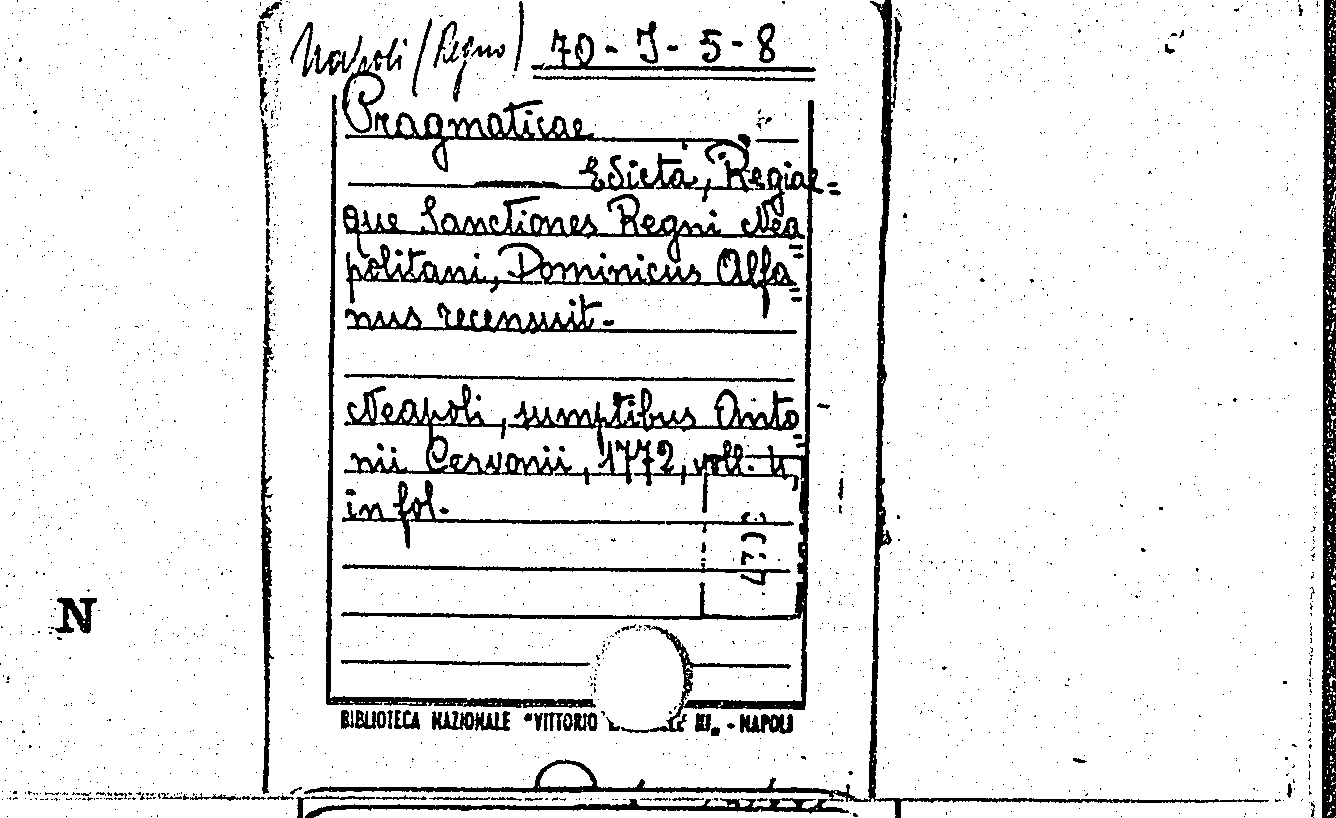 Napoli (Regno) 70-J-5-8
Pragmaticae
Edicta, Regiae=
que Sanctiones Regni Nea=
politani, Dominicus Alfa=
nus recensuit-
Neapoli, sumptibus Anto=
nii Cervonii, 1772, voll. 4,
in fol.
N
BIBLIOTECA NAZIONALE "VITTORIO NAPOLI